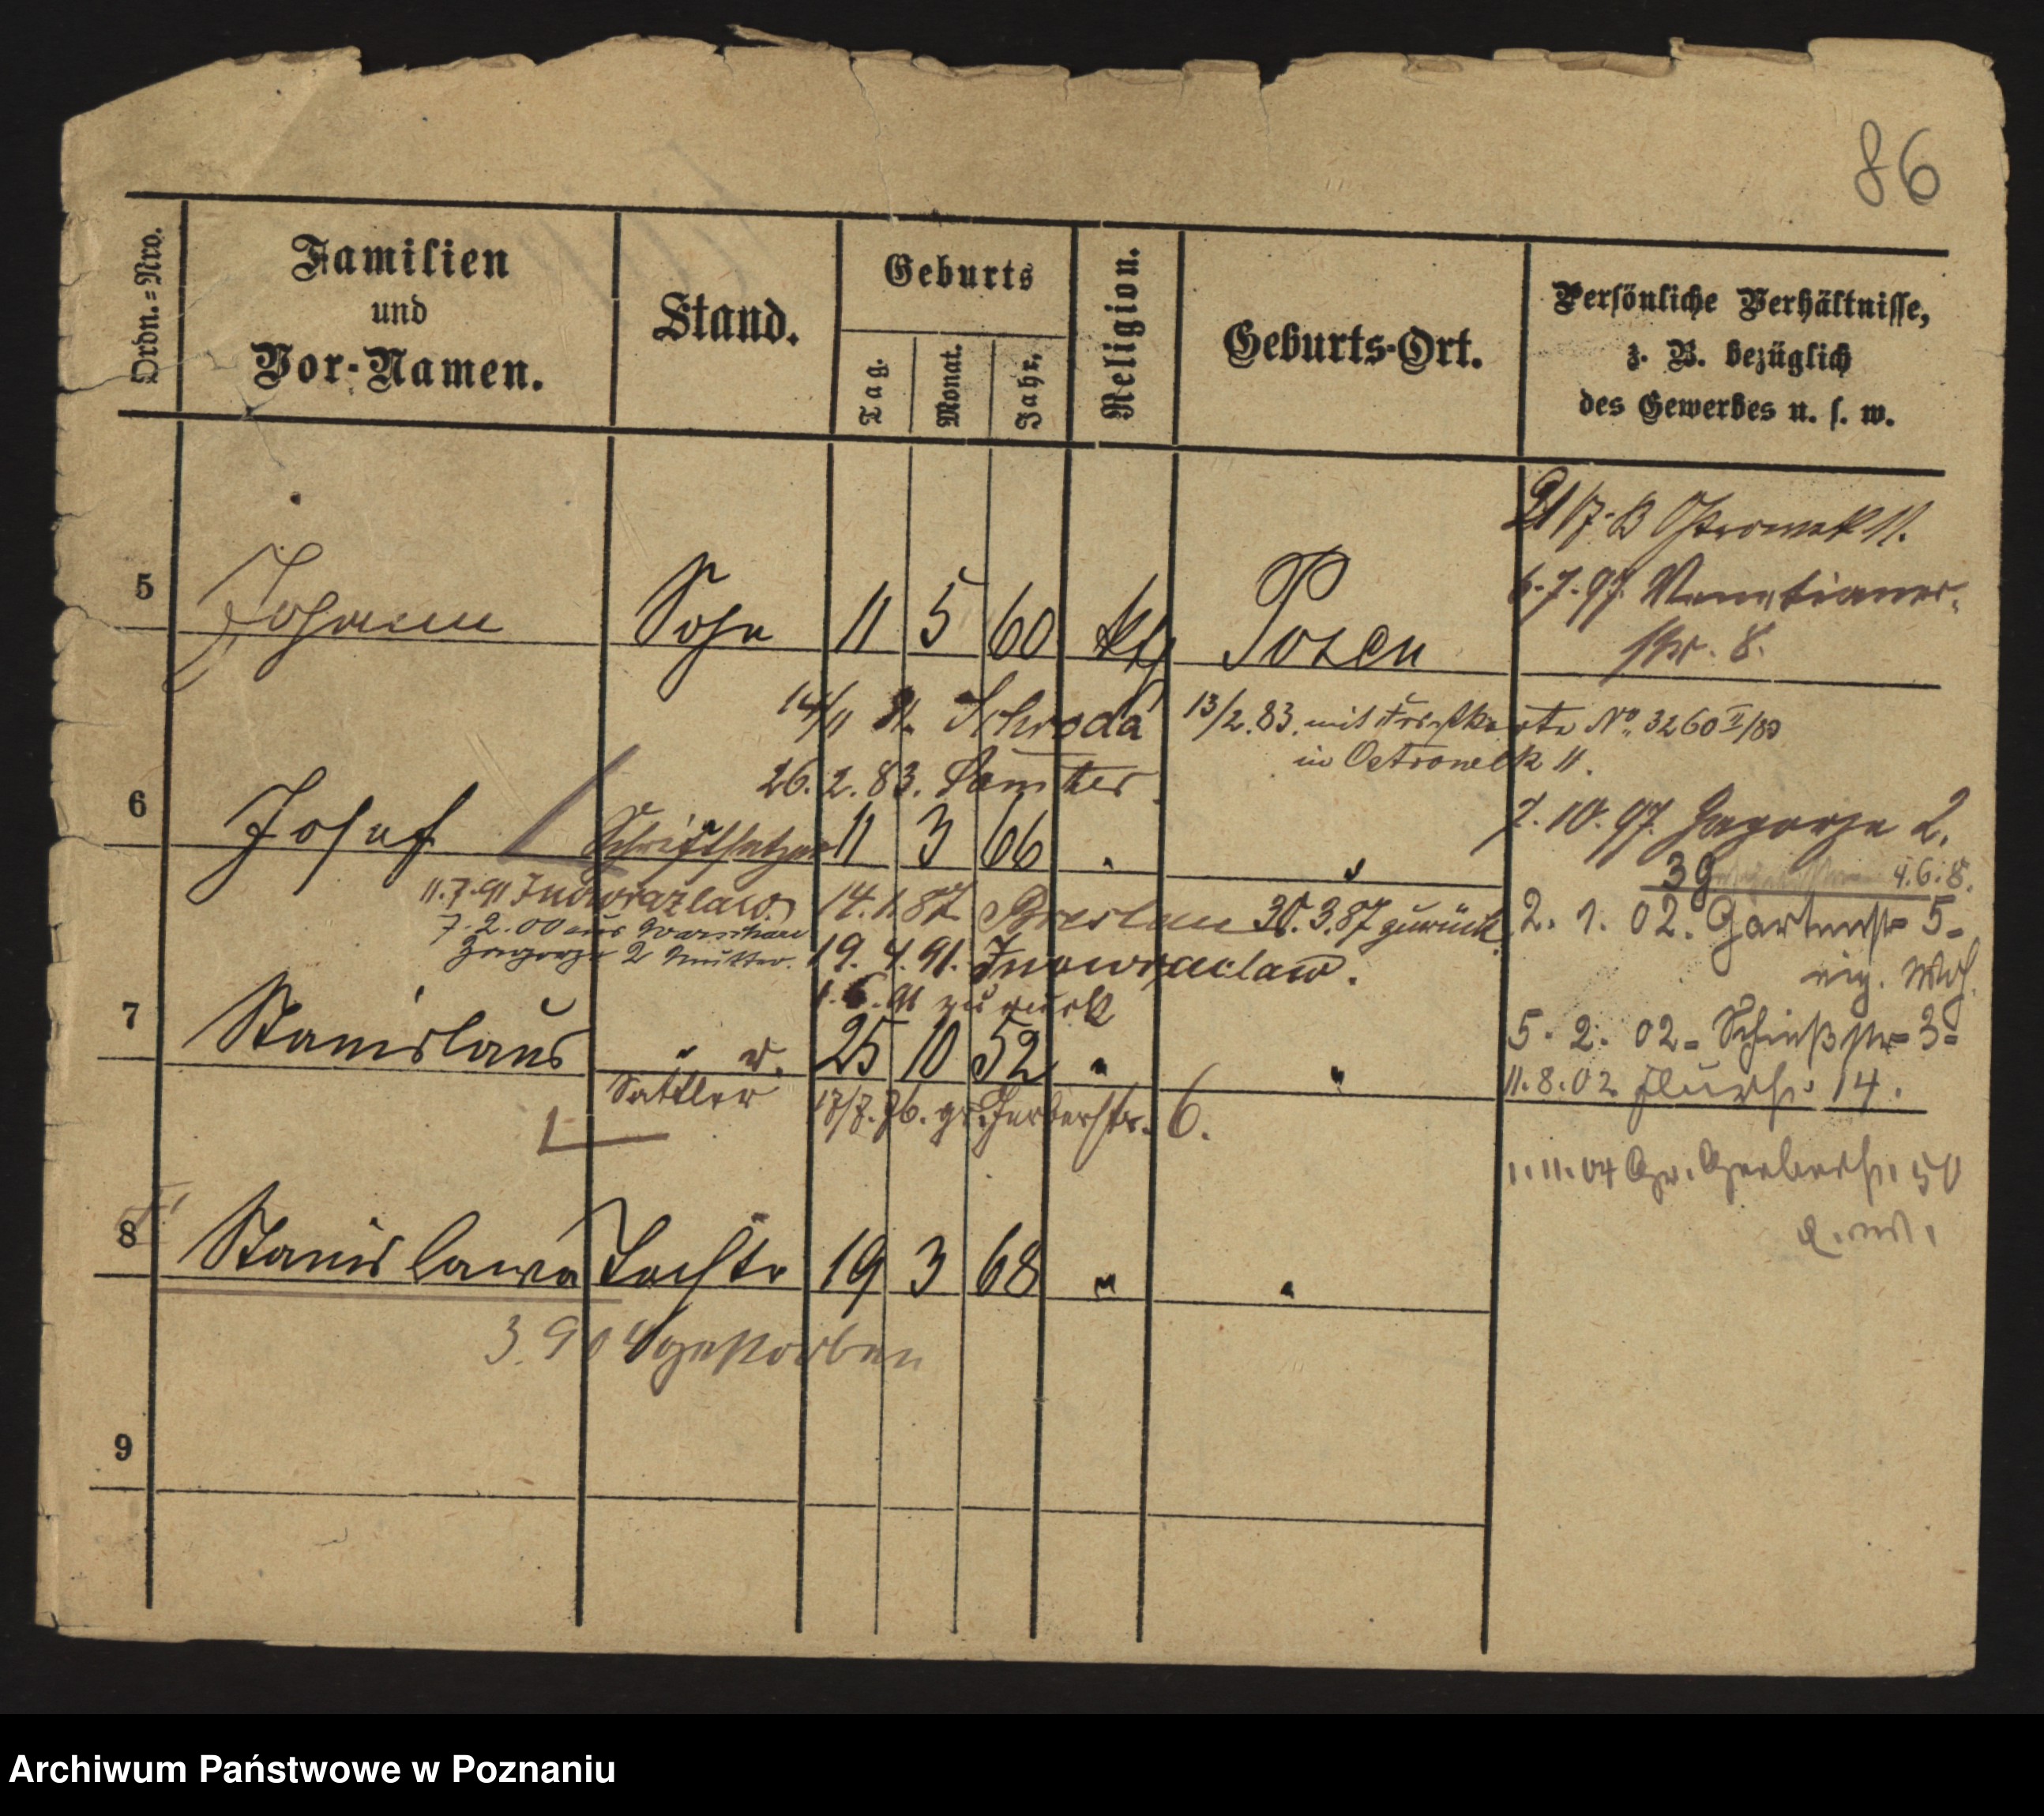 86
Ordn.=Nro.
Familien
und
Vor-Namen.
Stand.
Geburts
Tag.
Monat.
Jahr.
Religion.
Geburts-Ort.
Persönliche Verhältnisse,
z. B. bezüglich
des Gewerbes u. s. w.
21/7. Ostrowek 11.
6.7.97. Venetianer-
str. 8.
5 Johann Sohn 11 5 60 kth Posen
14/11 Schroda
13/2.83. mit No. 3260 II/83
in Ostrowek 11.
26.2.83. Samter.
6 Josef Schriftsetzer 11 3 66 " "
7.10.97. Zagorze 2.
39 4.6.8.
11.7.91 Inowrazlaw.
14.1.87 Breslau 30.3.87 zurück.
7.2.00 aus Warschau
Zagorze 2 Mutter.
19.4.91. Inowraclaw.
1.6.91 zurück
2.1.02. Gartenstr 5-
eig. Whg.
7 Stanislaus " 25 10 52 " "
Sattler
17/7.76. gr. Gerberstr. 6.
5.2.02- Schießstr- 3-
11.8.02 Flurstr. 14.
1.11.04 Gr. Gerberstr. 50
8 Stanislawa Tochtr 19 3 68 " "
3.904 gestorben
9
Archiwum Państwowe w Poznaniu